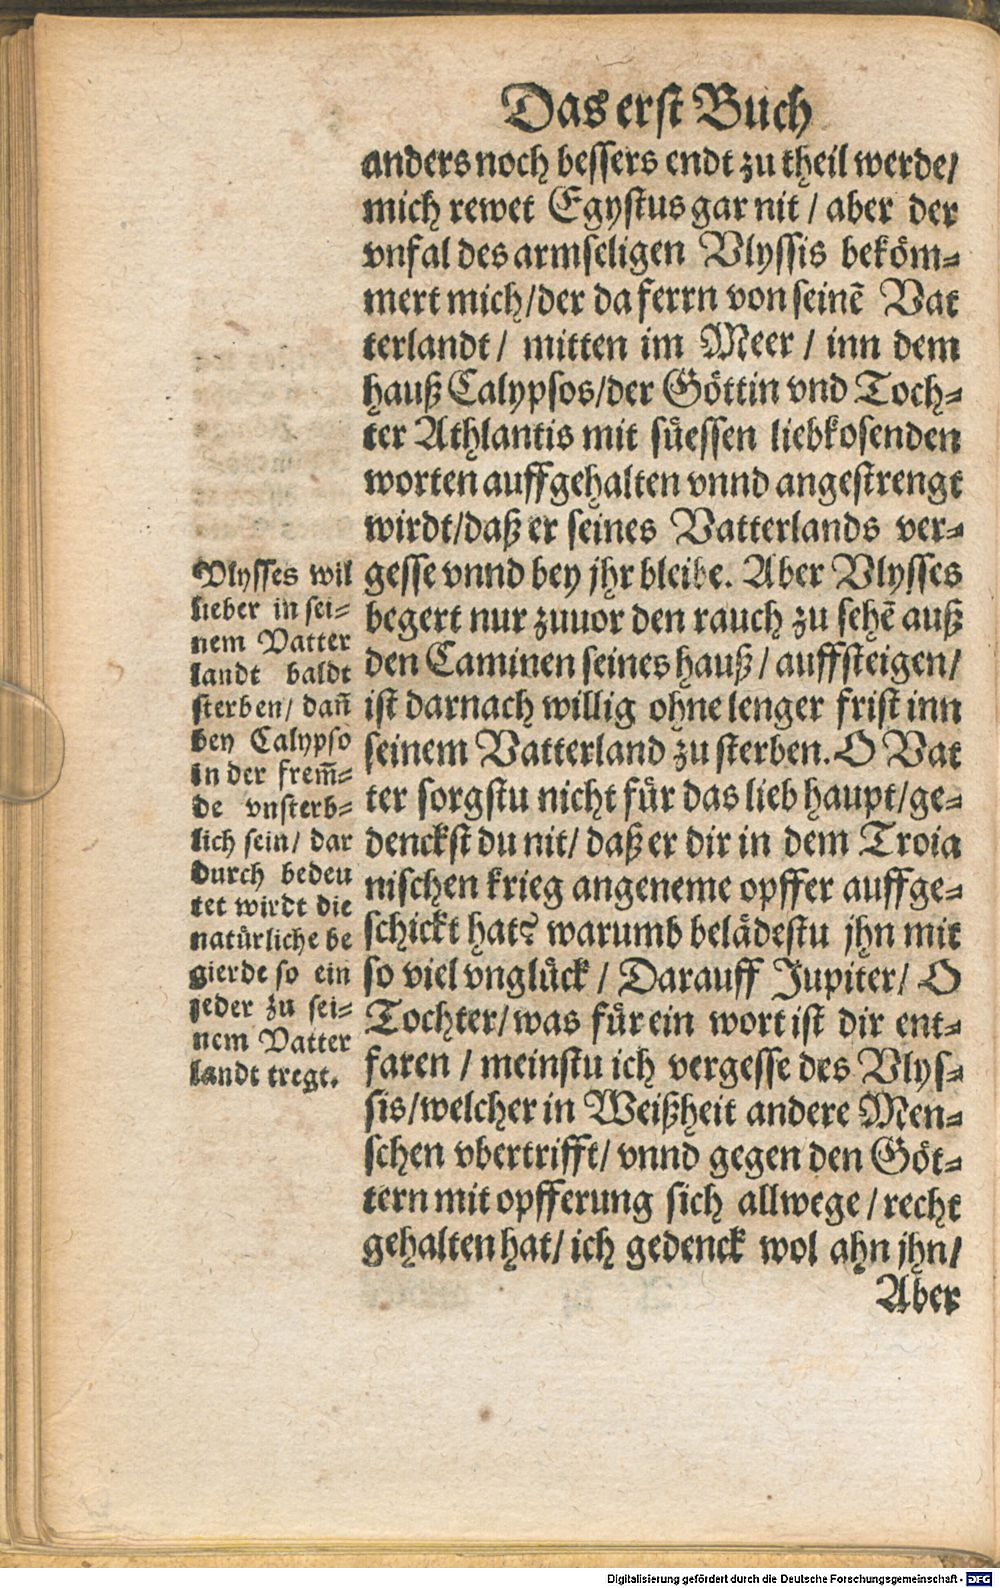 Das erst Buch
anders noch bessers endt zu theil werde/
mich rewet Egystus gar nit / aber der
vnfal des armseligen Vlyssis beköm⸗
mert mich/der da ferrn von seinē Vat
terlandt / mitten im Meer / inn dem
hauß Calypsos/der Göttin vnd Toch⸗
ter Athlantis mit süessen liebkosenden
worten auffgehalten vnnd angestrengt
wirdt/daß er seines Vatterlands ver⸗
gesse vnnd bey jhr bleibe. Aber Vlysses
begert nur zuuor den rauch zu sehē auß
den Caminen seines hauß / auffsteigen/
ist darnach willig ohne lenger frist inn
seinem Vatterland zu sterben. O Vat
ter sorgstu nicht für das lieb haupt/ge⸗
denckst du nit/ daß er dir in dem Troia
nischen krieg angeneme opffer auffge⸗
schickt hat? warumb belädestu jhn mit
so viel vnglück / Darauff Jupiter/ O
Tochter/was für ein wort ist dir ent⸗
faren / meinstu ich vergesse des Vlys⸗
sis/welcher in Weißheit andere Men⸗
schen vbertrifft/ vnnd gegen den Göt⸗
tern mit opfferung sich allwege / recht
gehalten hat/ ich gedenck wol ahn jhn/
Aber
Vlysses wil
lieber in sei⸗
nem Vatter
landt baldt
sterben/ dañ
bey Calypso
in der frem̄⸗
de vnsterb⸗
lich sein/ dar
durch bedeu
tet wirdt die
natürliche be
gierde so ein
jeder zu sei⸗
nem Vatter
landt tregt.
Digitalisierung gefördert durch die Deutsche Forschungsgemeinschaft - DFG